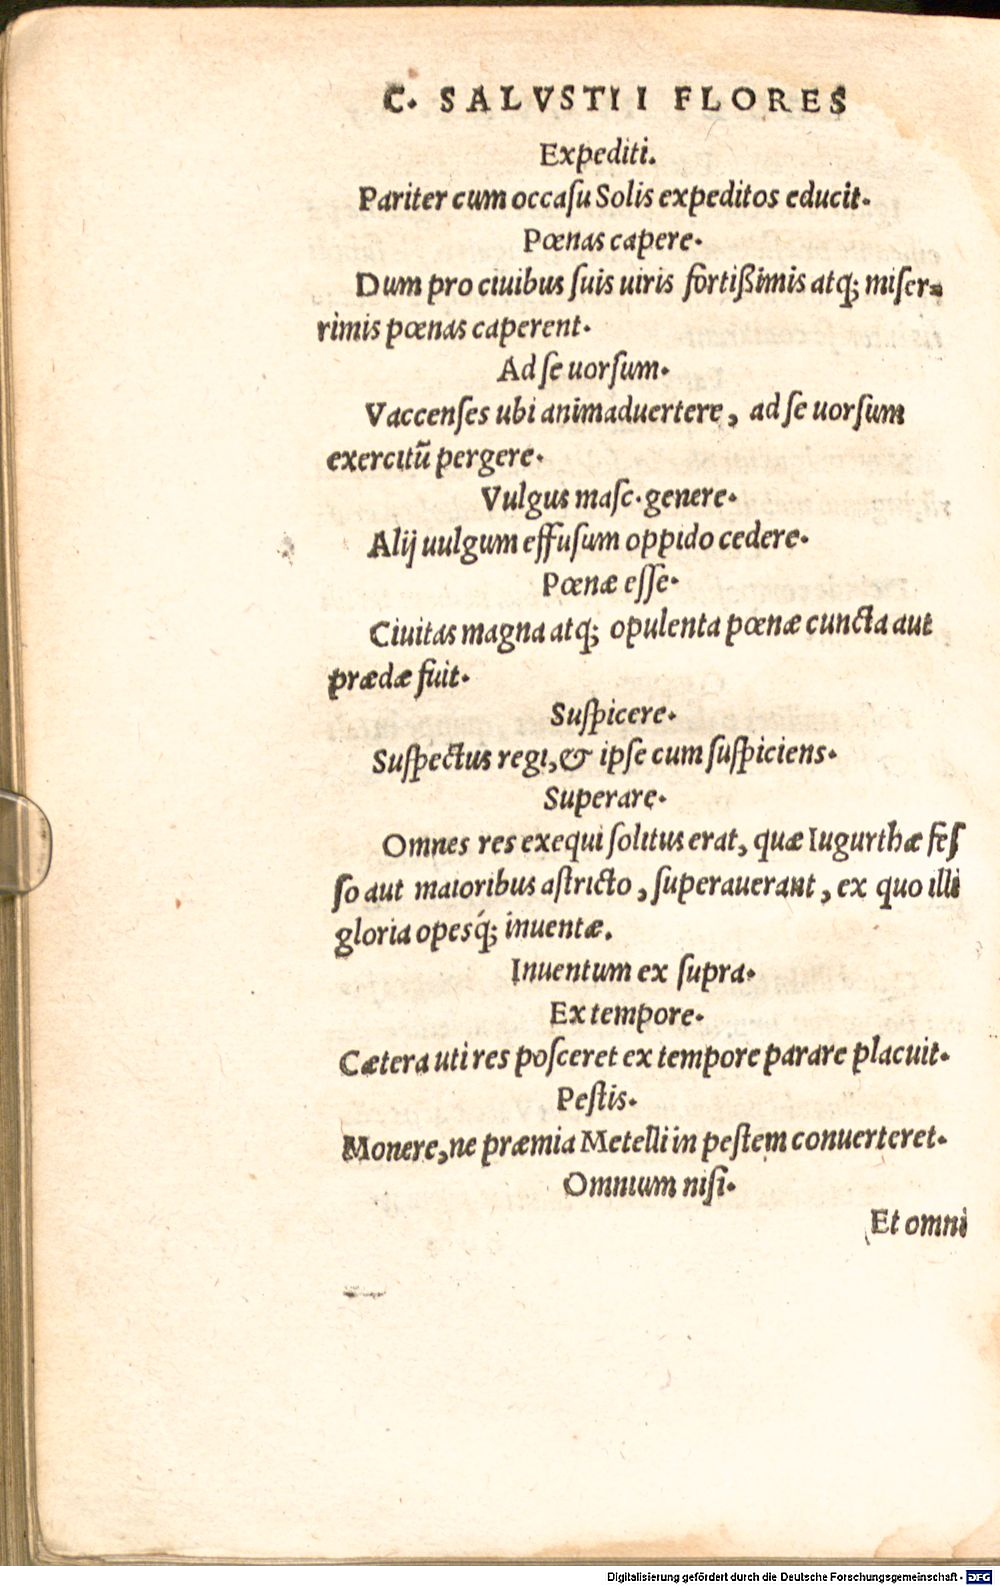 C. SALVSTII FLORES
Expediti.
Pariter cum occaſu Solis expeditos educit.
Pœnas capere.
Dum pro ciuibus ſuis uiris fortißimis atq; miſer-
rimis pœnas caperent.
Ad ſe uorſum.
Vaccenſes ubi animaduertere, ad ſe uorſum
exercitũ pergere.
Vulgus maſc. genere.
Alij uulgum effuſum oppido cedere.
Pœnæ eſſe.
Ciuitas magna atq; opulenta pœnæ cuncta aut
prædæ fuit.
Suſpicere.
Suſpectus regi, & ipſe cum ſuſpiciens.
Superare.
Omnes res exequi ſolitus erat, quæ Iugurthæ feſ
ſo aut maioribus aſtricto, ſuperauerant, ex quo illi
gloria opesq́; inuentæ.
Inuentum ex ſupra.
Ex tempore.
Cætera uti res poſceret ex tempore parare placuit.
Peſtis.
Monere, ne præmia Metelli in peſtem conuerteret.
Omnium niſi.
Et omni
Digitalisierung gefördert durch die Deutsche Forschungsgemeinschaft - DFG